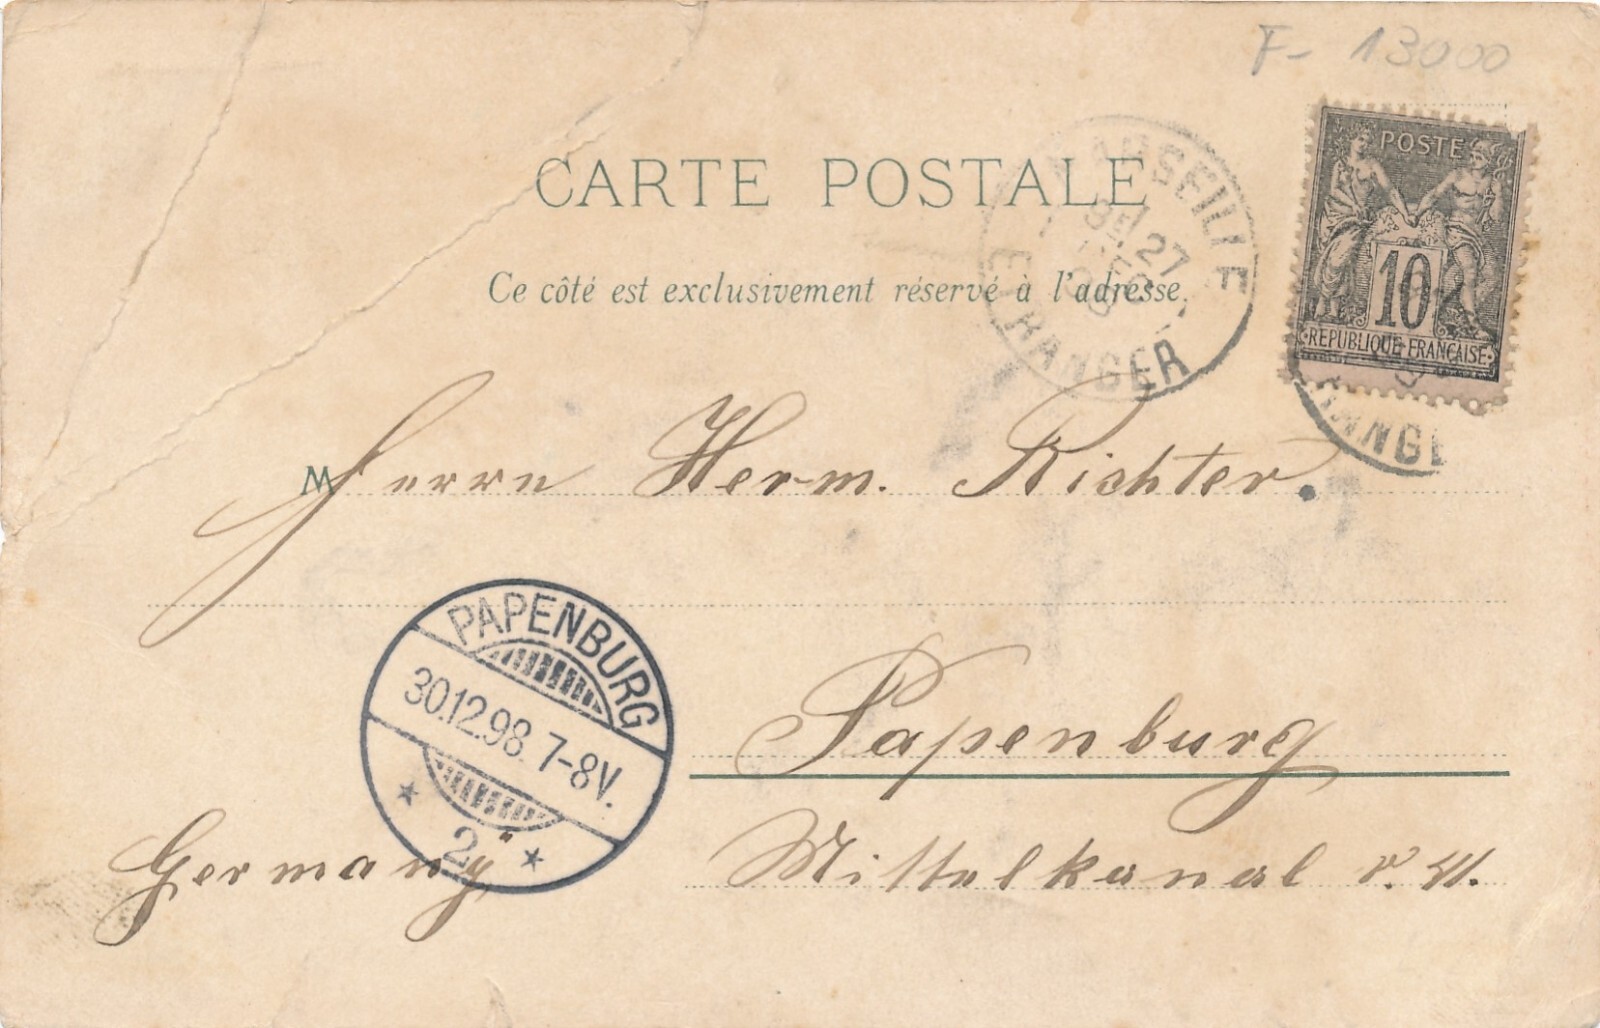 F- 13000
POSTE
10
REPUBLIQUE FRANÇAISE
CARTE POSTALE
MARSEILLE
27
ETRANGER
Ce côté est exclusivement réservé à l'adresse.
M
Herrn Herm. Richter.
PAPENBURG
30.12.98. 7-8V.
2
Papenburg
Germany
Mittelkanal r. W.